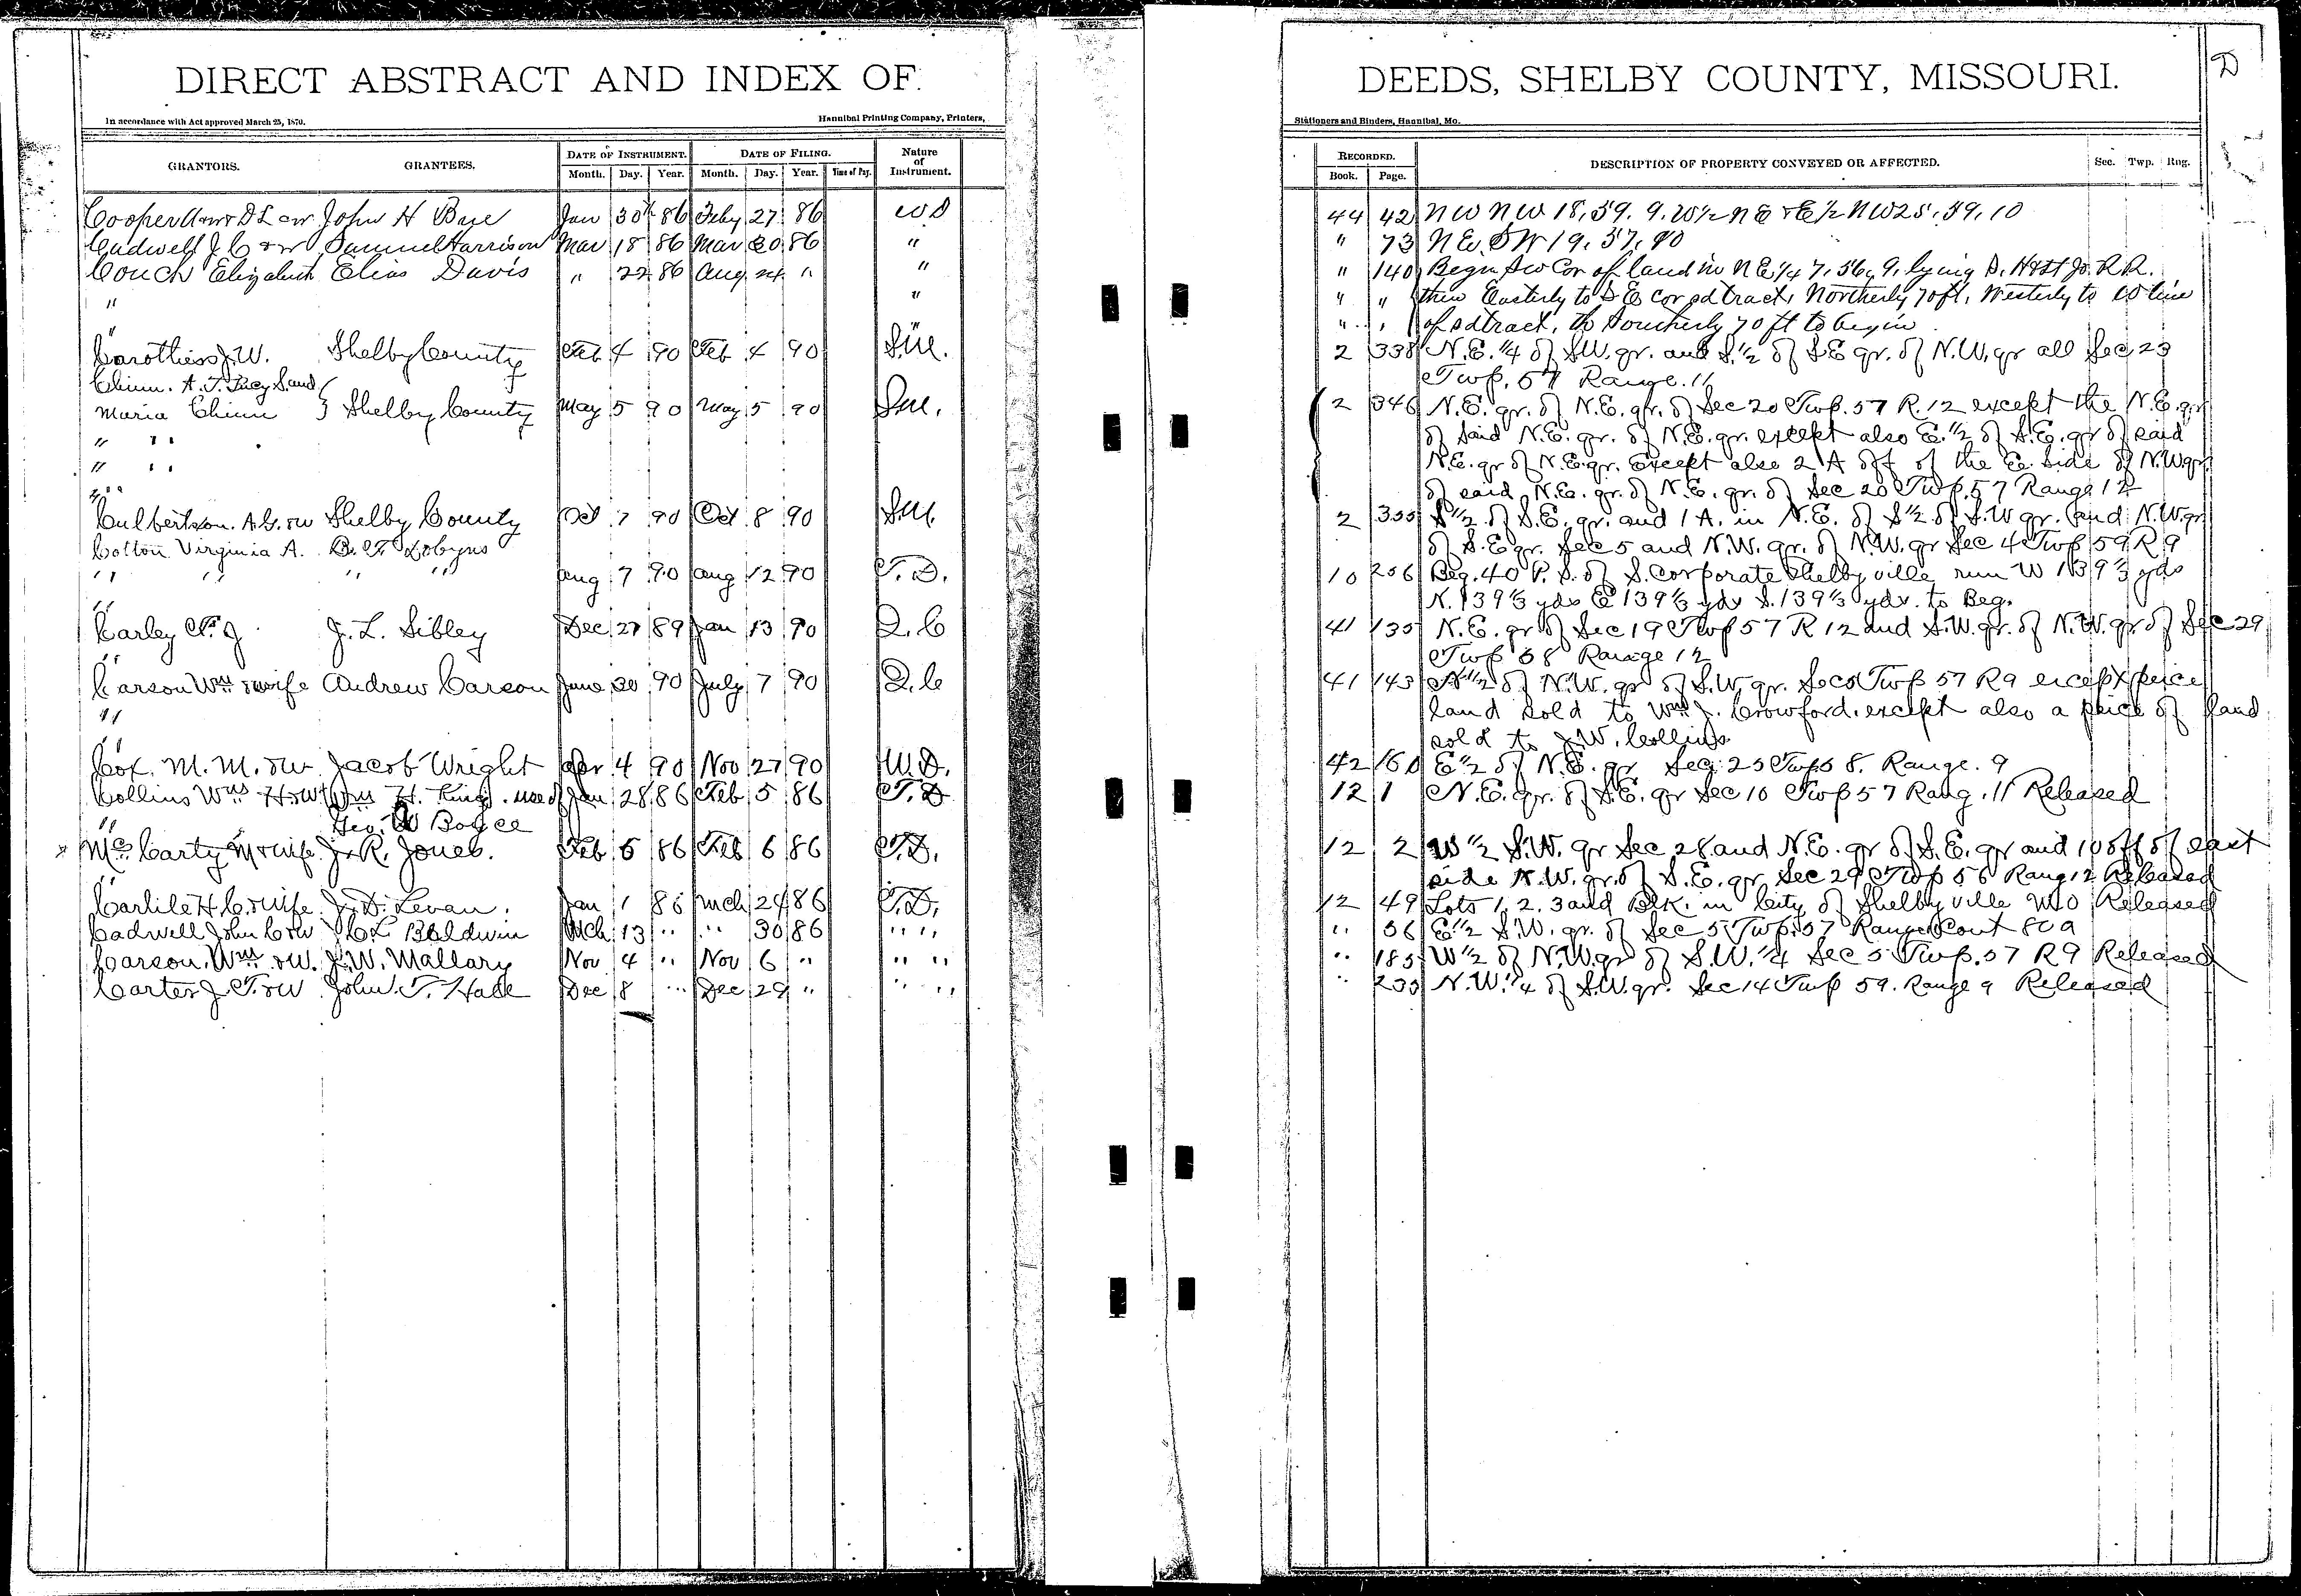 DIRECT ABSTRACT AND INDEX OF
In accordance with Act approved March 25, 1870.
Hannibal Printing Company, Printers,
GRANTORS. GRANTEES. DATE OF INSTRUMENT. DATE OF FILING. Nature of Instrument.
Month. Day. Year. Month. Day. Year. Time of Day.
Cooper D L John H Jan 30 86 Feby 27 86 WD
Cadwell J C & w Samuel Harrison Mar 18 86 Mar 20 86 "
Couch Elizabeth Elias Davis " 22 86 Aug 24 " "
" "
"
Carothers J. W. Shelby County Feb 4 90 Feb 4 90 S.M.
Chinn. A. T. Lucy S. and
Maria Chinn } Shelby County May 5 90 May 5 90 S.M.
" "
" "
" "
Culbertson. A. G. & w Shelby County Oct 7 90 Oct 8 90 S.M.
Cotton Virginia A. B. F. Dobyns
" " " " Aug 7 90 Aug 12 90 T. D.
"
Carley J. L. Sibley Dec 27 89 Jan 13 90 Q. C
"
Carson Wm & wife Andrew Carson June 30 90 July 7 90 Q. C
"
"
Cox. M. M. & w. Jacob Wright Apr 4 90 Nov 27 90 W. D.
Collins Wm H & w Wm H. King. use of Jan 28 86 Feb 5 86 T. D
" Geo. W Boyce
x McCarty M & wife J. R. Jones. Feb 5 86 Feb 6 86 T. D.
"
Carlile H C. & wife J. D. Levan. Jan 1 86 Mch 24 86 T. D.
Cadwell John C & w C. L Baldwin Mch 13 " " 30 86 " "
Carson. Wm & w. J. W. Mallary Nov 4 " Nov 6 " " "
Carter J. T. & w John. T. Hale Dec 8 " Dec 29 " " "
DEEDS, SHELBY COUNTY, MISSOURI.
D
Stationers and Binders, Hannibal, Mo.
RECORDED. DESCRIPTION OF PROPERTY CONVEYED OR AFFECTED. Sec. Twp. Rng.
Book. Page.
44 42 NW NW 18, 59. 9. W 1/2 NE & E 1/2 NW 25, 59, 10
" 73 NE. SW 19. 57. 10
" 140 Begin Sw Cor of land in NE 1/4 7, 56, 9, lying S. H & St Jo. R R.
" " then Easterly to S E cor sd tract, Northerly 70 ft, Westerly to W line
" " of sd tract, th Southerly 70 ft to begin
2 338 N. E. 1/4 of SW. qr. and S. 1/2 of S E qr. of N. W. qr all Sec 23
Twp. 57 Range. 11
2 346 N. E. qr. of N. E. qr. of Sec 20 Twp. 57 R. 12 except the N. E. qr
of said N. E. qr. of N. E. qr. except also E. 1/2 of S. E. qr of said
N. E. qr of N. E. qr. Except also 2 A off of the E. side of N. W qr
of said N. E. qr. of N. E. qr. of Sec 20 Twp. 57 Range 12
2 355 S 1/2 of S. E. qr. and 1 A. in N. E. of S 1/2 of S. W qr. and N. W. qr
of S. E qr. Sec 5 and N. W. qr. of N. W. qr Sec 4 Twp 59 R 9
10 256 Beg. 40 P. S. of S. Corporate Shelbyville run W 139 1/3 yds
N. 139 1/3 yds E 139 1/3 yds S. 139 1/3 yds. to Beg.
41 135 N. E. qr of Sec 19 Twp 57 R 12 and S. W. qr. of N. W. qr of Sec 29
Twp 58 Range 12
41 143 N 1/2 of N. W. qr of S. W. qr. Sec 5 Twp 57 R 9 except peice
land sold to Wm J. Crowford. except also a peice of land
sold to J. W. Collins
42 160 E 1/2 of N. E. qr Sec 25 Twp 58. Range. 9
12 1 N. E. qr. of S. E. qr Sec 10 Twp 57 Rang. 11 Released
12 2 W 1/2 S. W. qr Sec 28 and N. E. qr of S. E. qr and 10 off of east
side N. W. qr. of S. E. qr. Sec 29 Twp 58 Rang 12 Released
12 49 Lots 1, 2. 3 and Blk. in City of Shelbyville MO Released
" 56 E 1/2 S. W. qr. of Sec 5 Twp. 57 Range cont 80 a
" 185 W 1/2 of N. W. qr of S. W. 1/4 Sec 5 Twp. 57 R 9 Released
" 235 N. W. 1/4 of S. W. qr. Sec 14 Twp 59. Range 9 Released